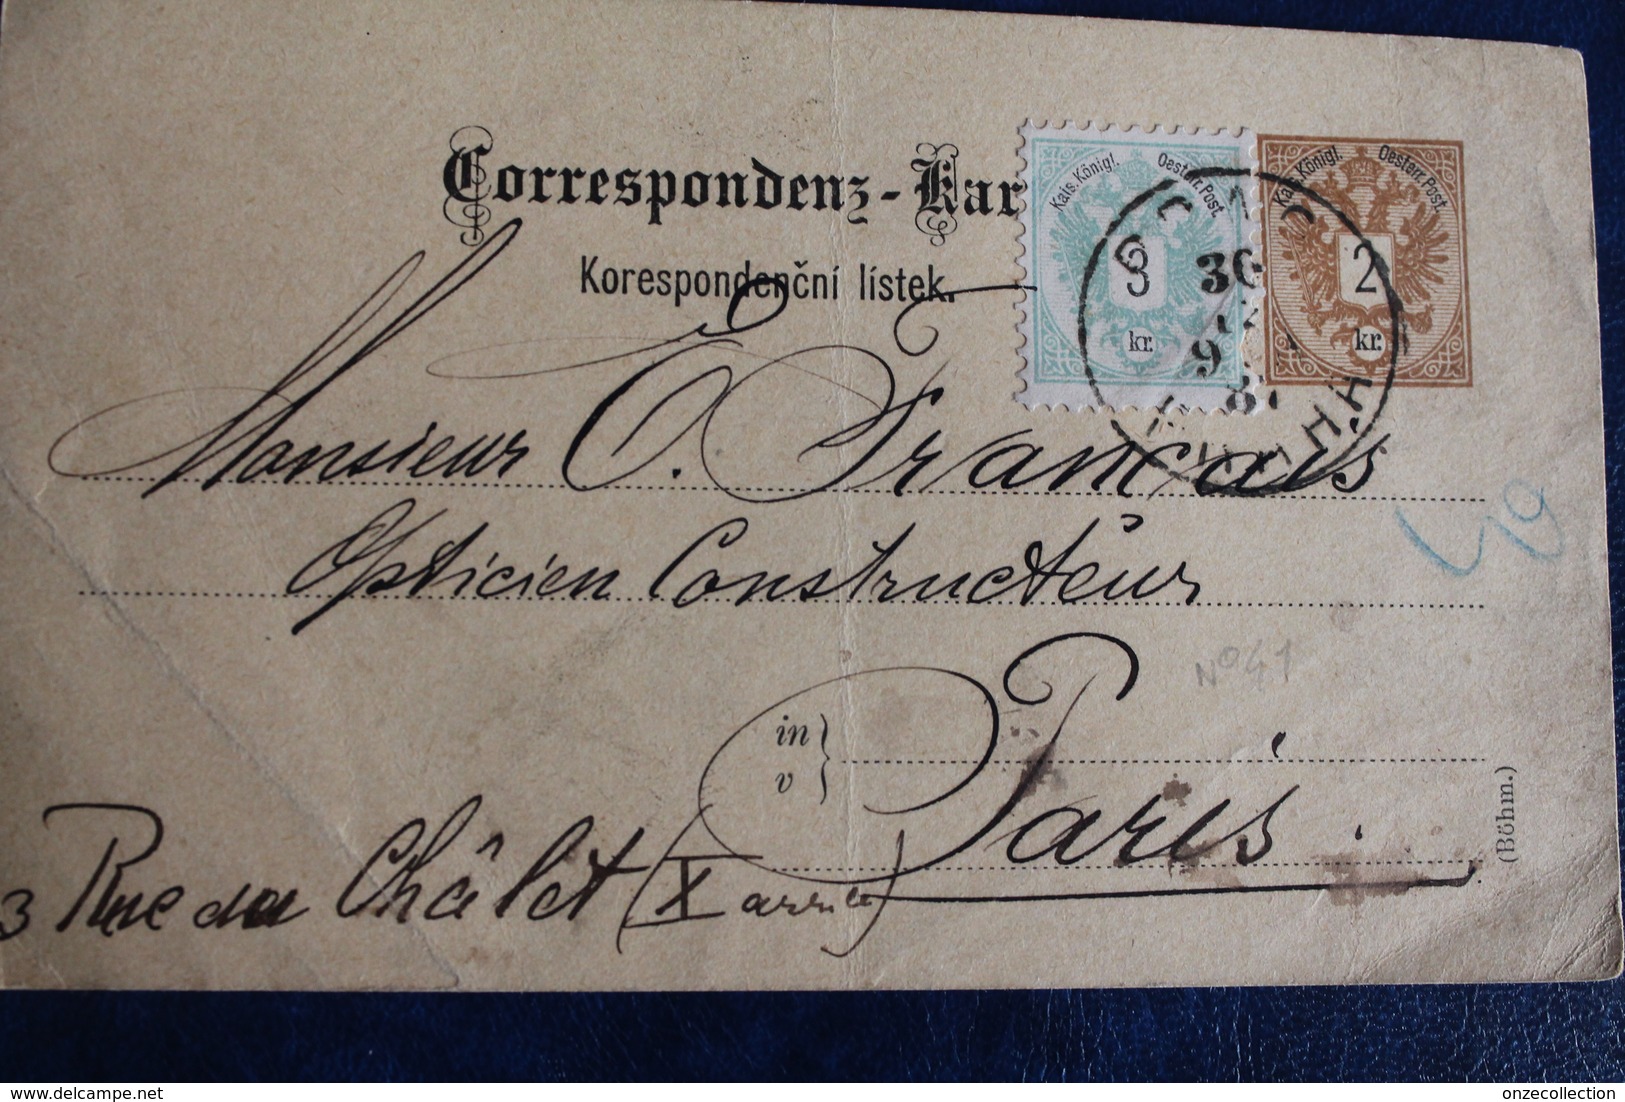 Correspondenz-Kar
Korespondenční lístek.
Kais. Königl. Oesterr. Post.
3
kr.
Kais. Königl. Oesterr. Post.
2
kr.
30
9
Monsieur É. Français
Opticien Constructeur
N° 41
in
v
Paris.
3 Rue du Châlet (X arrdt)
(Böhm.)
delcampe.net
onzecollection